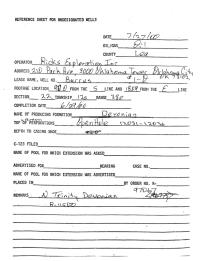 REFERENCE SHEET FOR UNDESIGNATED WELLS
DATE 7/27/00
COUNTY Lea
OPERATOR Ricks Exploration Inc
ADDRESS 210 Park Ave, 3000 Oklahoma Tower Oklahoma City
LEASE NAME, WELL NO. Burrus
FOOTAGE LOCATION FROM THE S LINE AND FROM THE E LINE
SECTION 22 TOWNSHIP 12s RANGE 38e
COMPLETION DATE
NAME OF PRODUCING FORMATION Devonian
TOP OF PERFORATIONS Open Hole
DEPTH TO CASING SHOE
C-123 FILED
NAME OF POOL FOR WHICH EXTENSION WAS ASKED
ADVERTISED FOR HEARING CASE NO.
NAME OF POOL FOR WHICH EXTENSION WAS ADVERTISED
PLACED IN BY ORDER NO. R-
REMARKS N Trinity Devonian